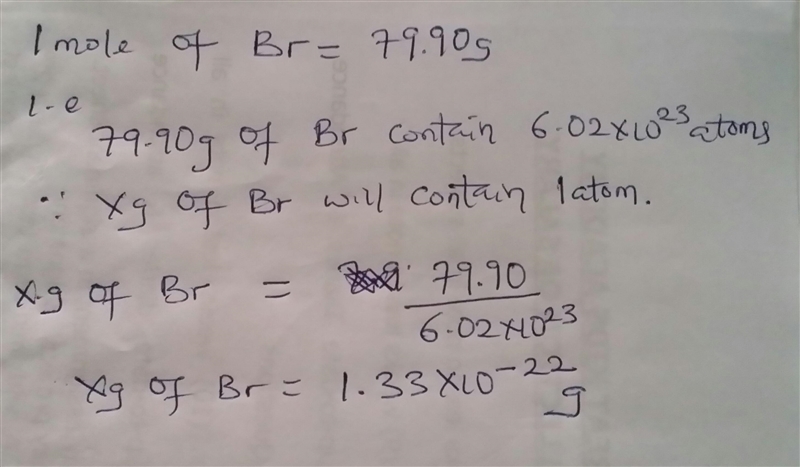 1 mole of Br = 79.90g
i-e
79.90g of Br contain 6.02×10²³ atoms
∵ Xg of Br will contain 1atom.
X.g of Br = 79.90 / 6.02×10²³
Xg of Br = 1.33×10⁻²² g